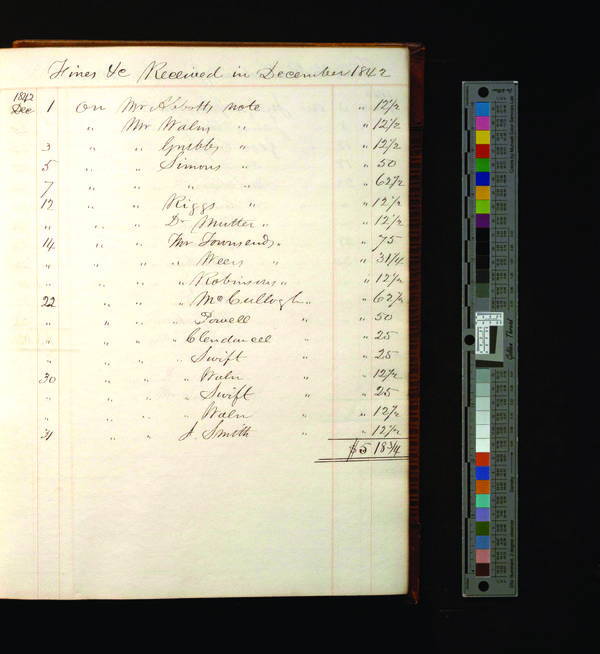 Fines &c Received in December 1842
1842
Dec 1 On Mr Abbotts note " 12½
" Mr Walns " " 12½
3 " " Grubbs " " 12½
5 " " Simons " " 50
7 " " " " " 62½
12 " " Riggs " " 12½
" " " Dr Mutter " " 12½
14 " " Mr Townsends " " 75
" " " " Weers " " 31¼
" " " " Robinsons " " 12½
22 " " " McCullogh " " 62½
" " " " Powell " " 50
" " " " " " 25
" " " " Swift " " 25
30 " " " Waln " " 12½
" " " " Swift " " 25
" " " " Waln " " 12½
31 " " J. Smith " " 12½
$5 18¾